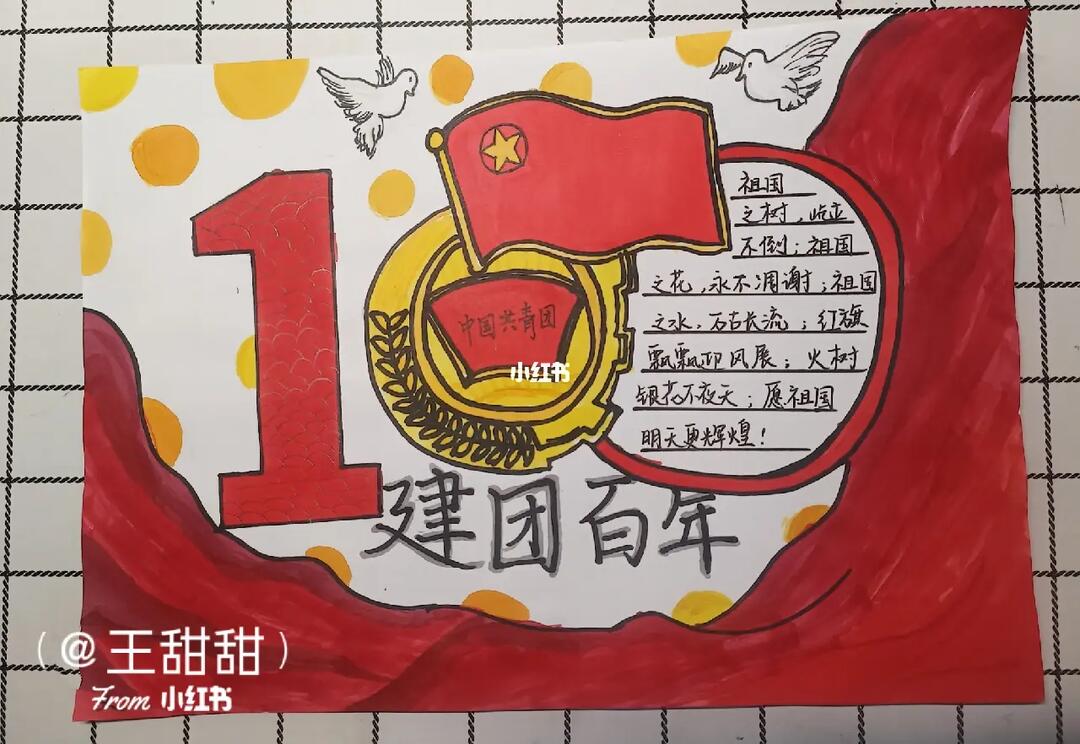 100
祖国
之树，屹立
不倒；祖国
之花，永不凋谢；祖国
之水，万古长流；红旗
飘飘迎风展；火树
银花不夜天；愿祖国
明天更辉煌！
中国共青团
小红书
建团百年
(@王甜甜)
From 小红书